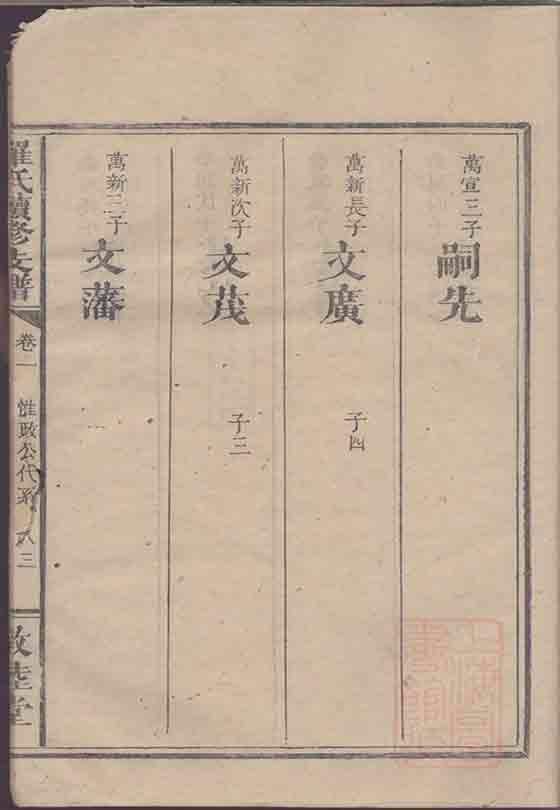 萬宣三子 嗣先
萬新長子 文廣 子四
萬新次子 文茂 子三
萬新三子 文藩
羅氏續修支譜
卷一 惟政公代系 八三
敦睦堂